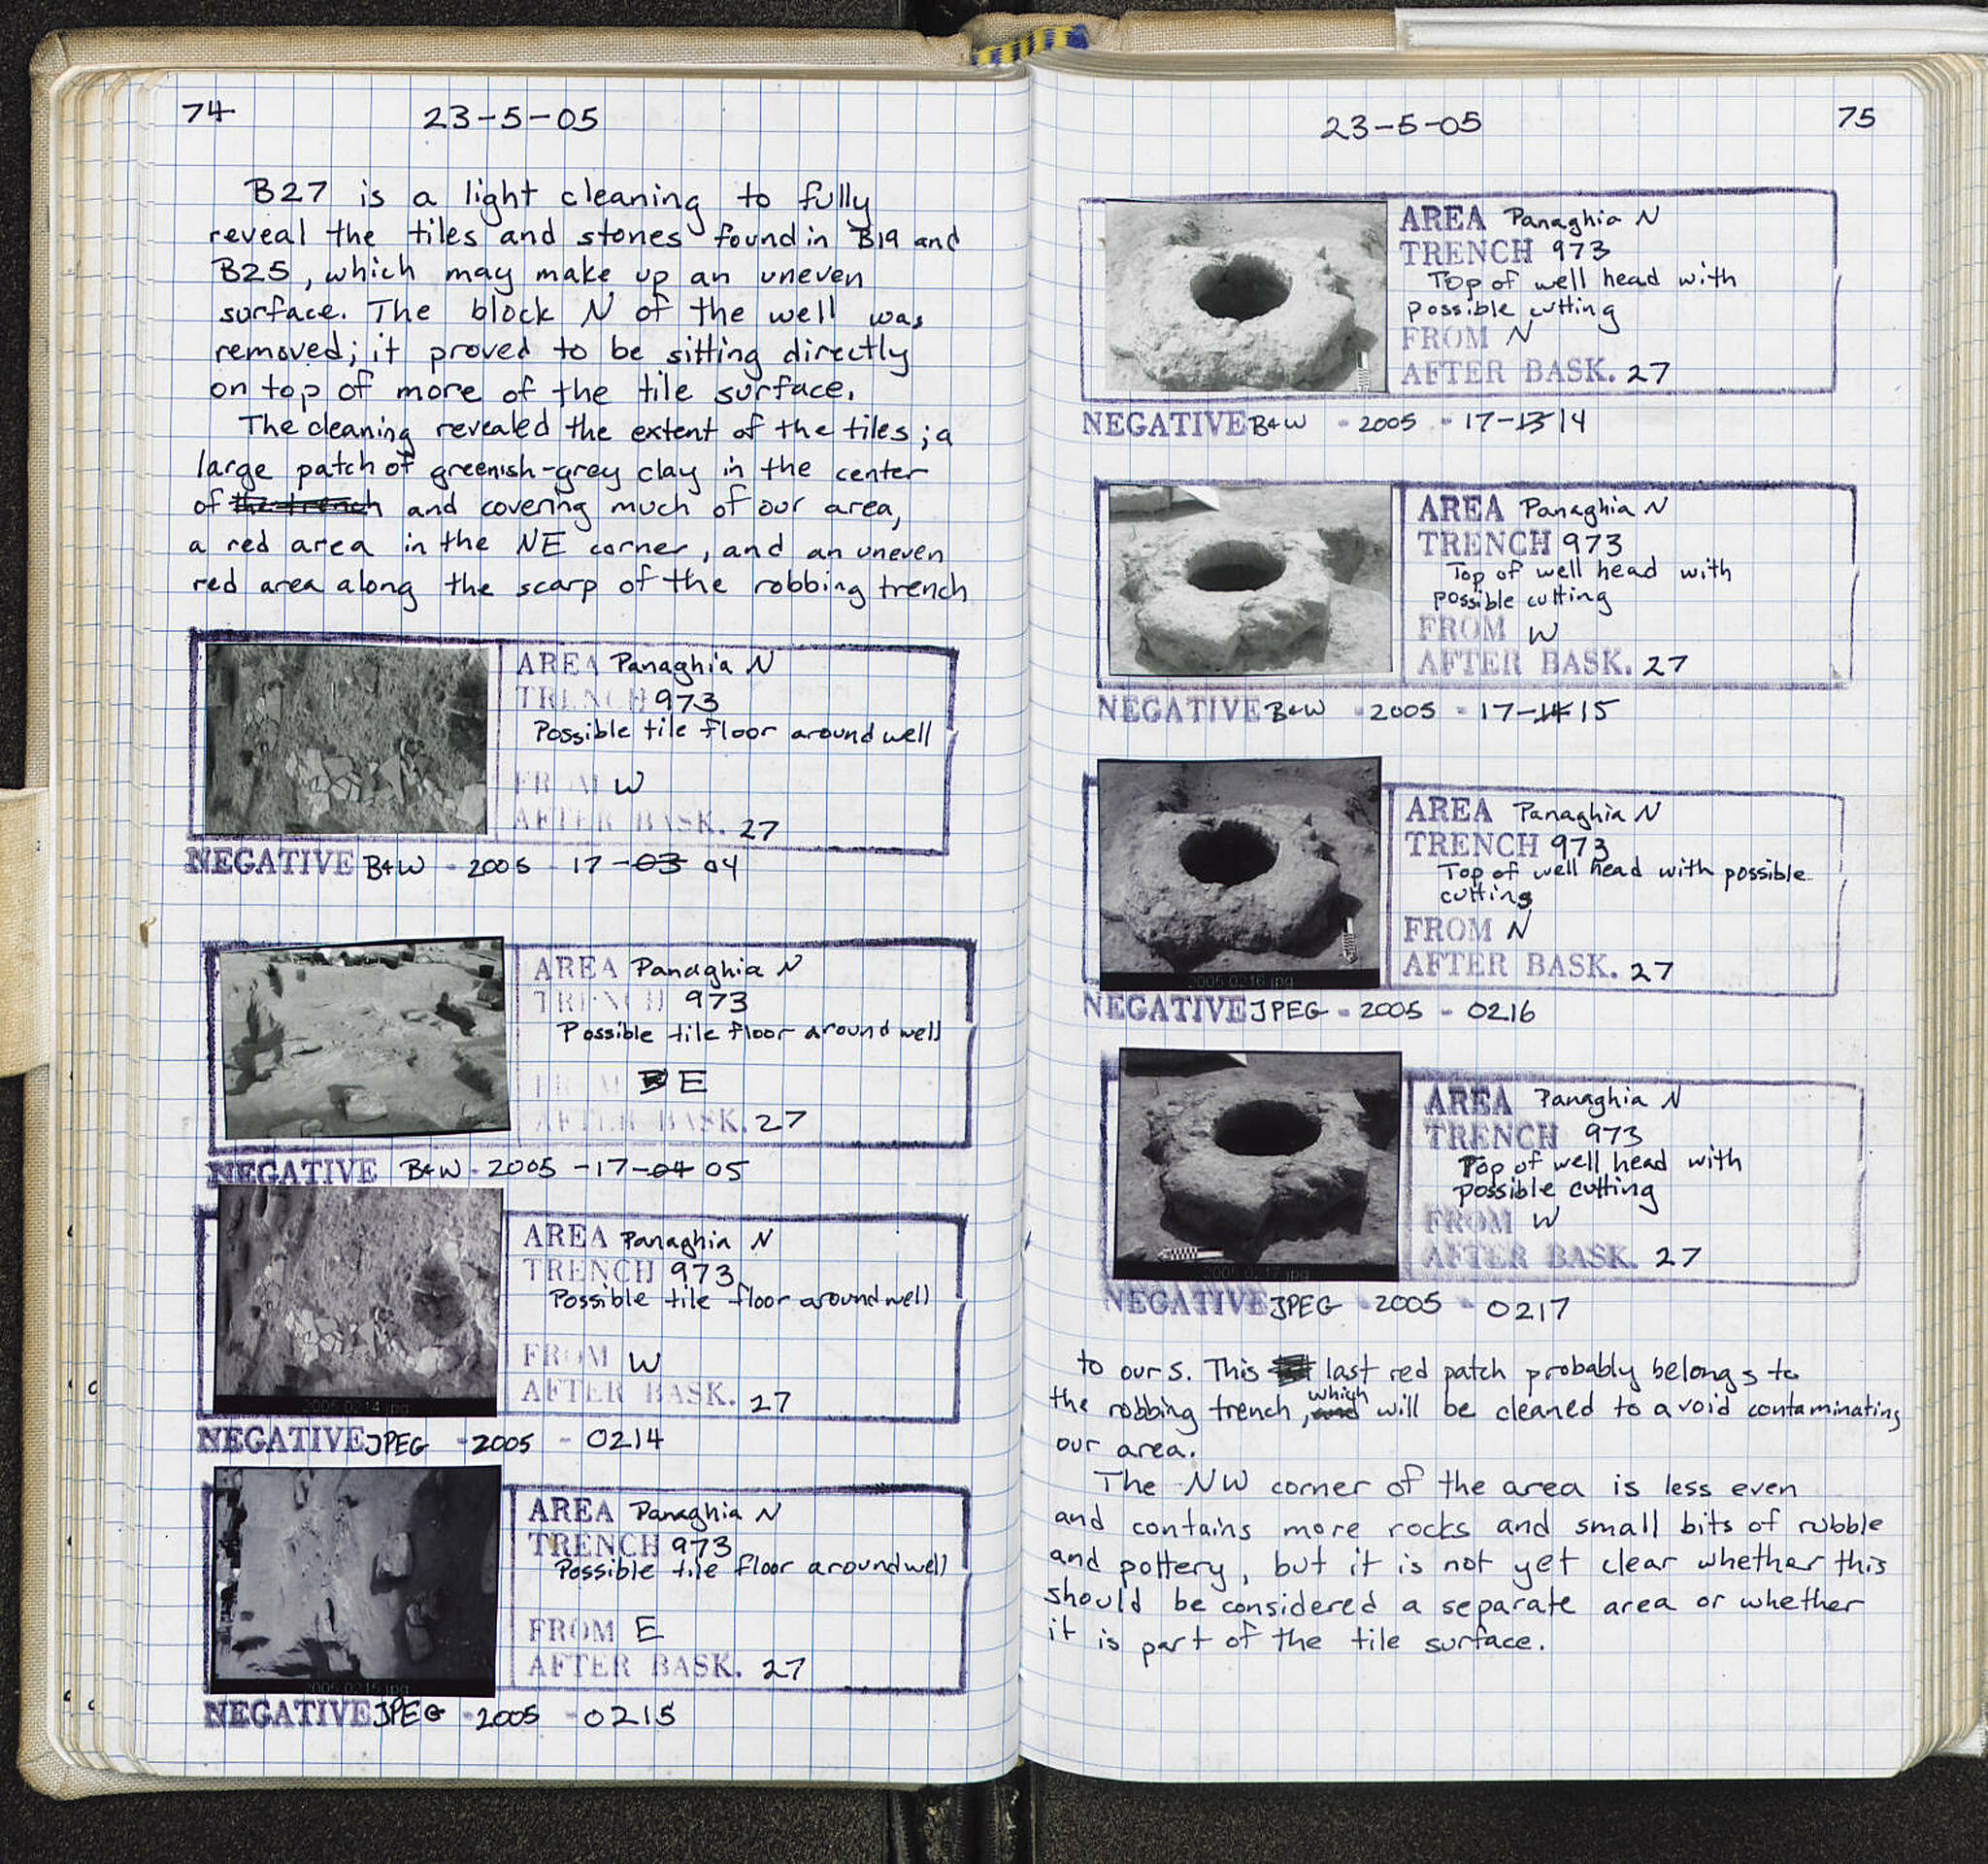 74
23-5-05
B27 is a light cleaning to fully
reveal the tiles and stones found in B19 and
B25, which may make up an uneven
surface. The block N of the well was
removed; it proved to be sitting directly
on top of more of the tile surface.
The cleaning revealed the extent of the tiles; a
large patch of greenish-grey clay in the center
of the trench and covering much of our area,
a red area in the NE corner, and an uneven
red area along the scarp of the robbing trench
AREA Panaghia N
TRENCH 973
Possible tile floor around well
FROM W
AFTER BASK. 27
NEGATIVE B+W - 2005 - 17-03 04
AREA Panaghia N
TRENCH 973
Possible tile floor around well
FROM E
AFTER BASK. 27
NEGATIVE B+W - 2005 - 17-04 05
AREA Panaghia N
TRENCH 973
Possible tile floor around well
FROM W
AFTER BASK. 27
2005-0214.jpg
NEGATIVE JPEG - 2005 - 0214
AREA Panaghia N
TRENCH 973
Possible tile floor around well
FROM E
AFTER BASK. 27
2005-0215.jpg
NEGATIVE JPEG - 2005 - 0215
23-5-05
75
AREA Panaghia N
TRENCH 973
Top of well head with
possible cutting
FROM N
AFTER BASK. 27
NEGATIVE B+W - 2005 - 17-13 14
AREA Panaghia N
TRENCH 973
Top of well head with
possible cutting
FROM W
AFTER BASK. 27
NEGATIVE B+W - 2005 - 17-14 15
AREA Panaghia N
TRENCH 973
Top of well head with possible
cutting
FROM N
AFTER BASK. 27
2005-0216.jpg
NEGATIVE JPEG - 2005 - 0216
AREA Panaghia N
TRENCH 973
Top of well head with
possible cutting
FROM W
AFTER BASK. 27
2005-0217.jpg
NEGATIVE JPEG - 2005 - 0217
to ours. This last red patch probably belongs to
the robbing trench, and which will be cleaned to avoid contaminating
our area.
The NW corner of the area is less even
and contains more rocks and small bits of rubble
and pottery, but it is not yet clear whether this
should be considered a separate area or whether
it is part of the tile surface.